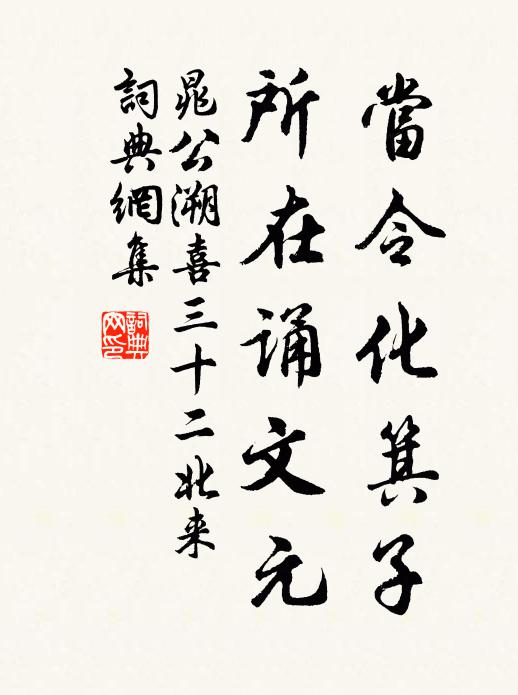 當令化箕子
所在诵文元
晁公溯喜三十二北来
詞典網集
詞典网印